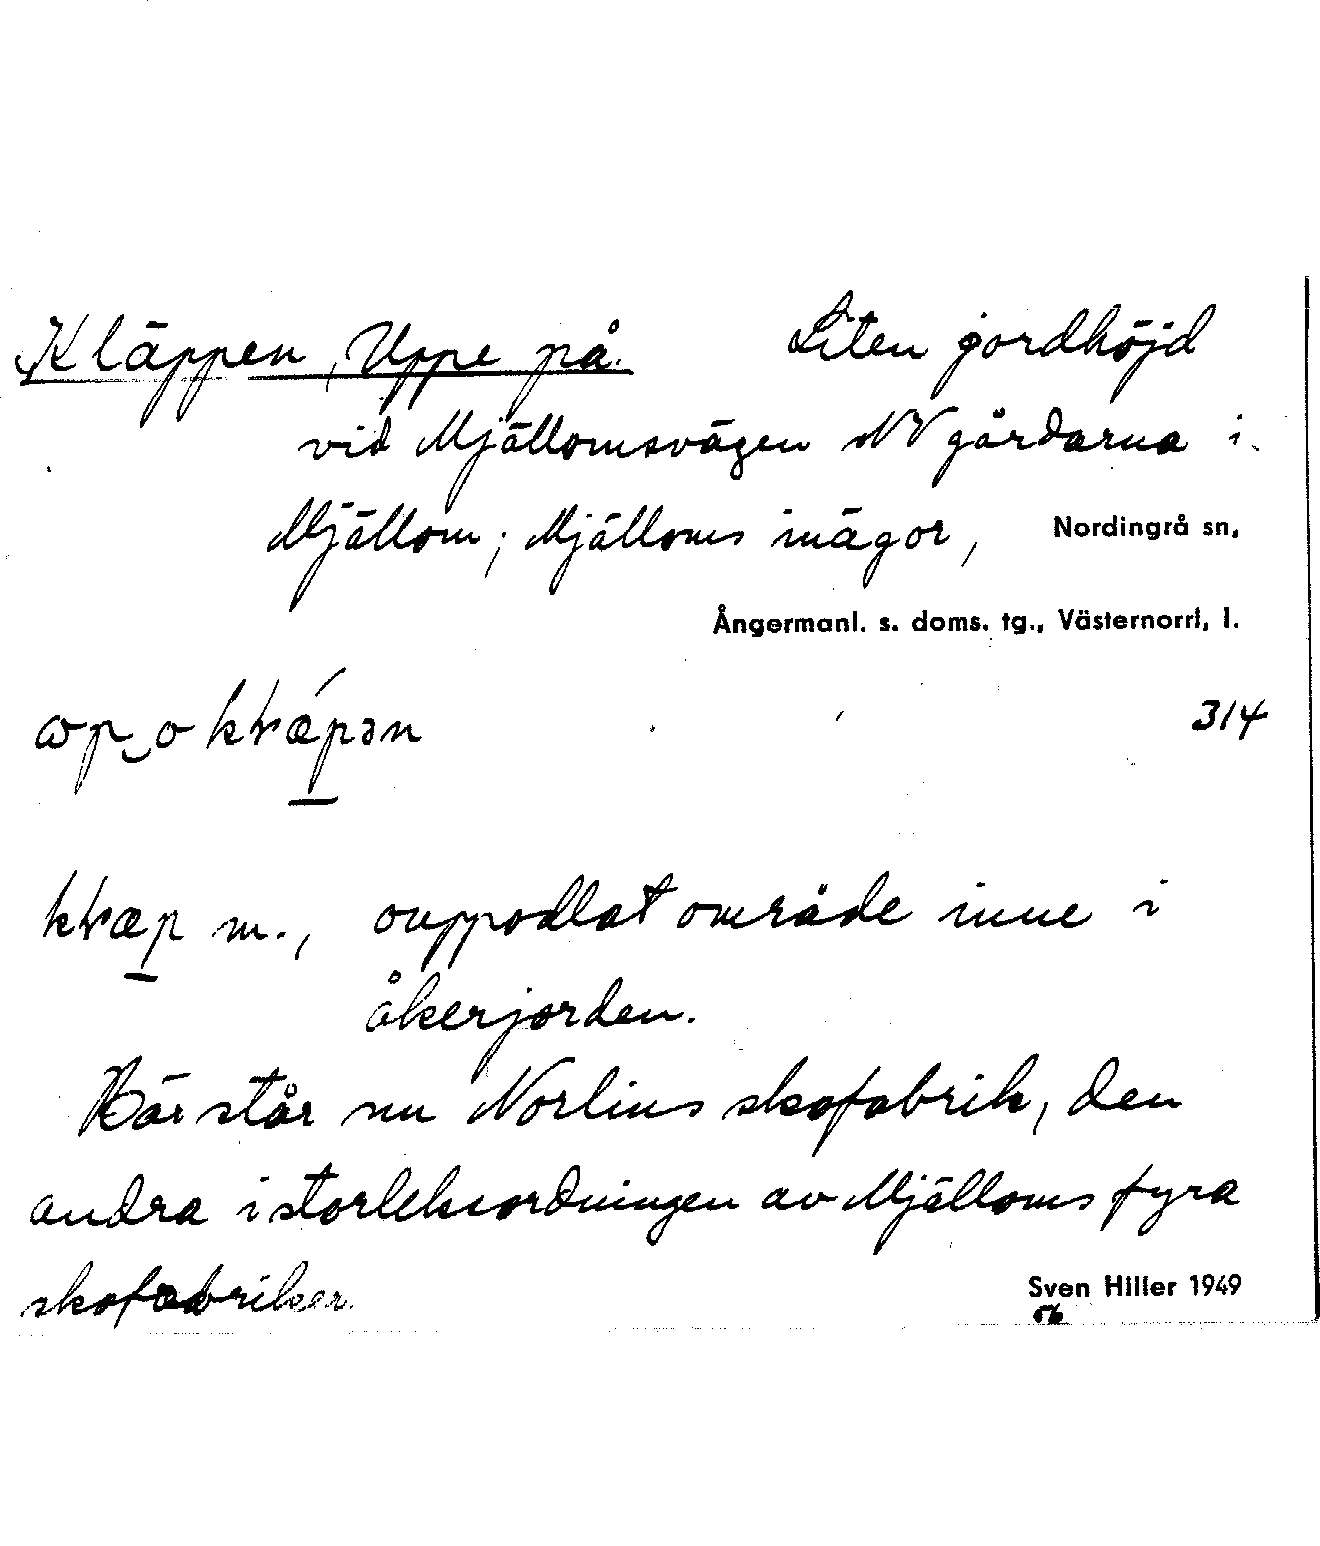 Kläppen, Uppe på. Liten jordhöjd
vid Mjällomsvägen NV gårdarna i
Mjällom; Mjälloms inägor, Nordingrå sn,
Ångermanl. s. doms. tg., Västernorrl, l.
314
m., ouppodlat område inne i
åkerjorden.
Här står nu Norlins skofabrik, den
andra i storleksordningen av Mjälloms fyra
skofabriker.
Sven Hiller 1949
56